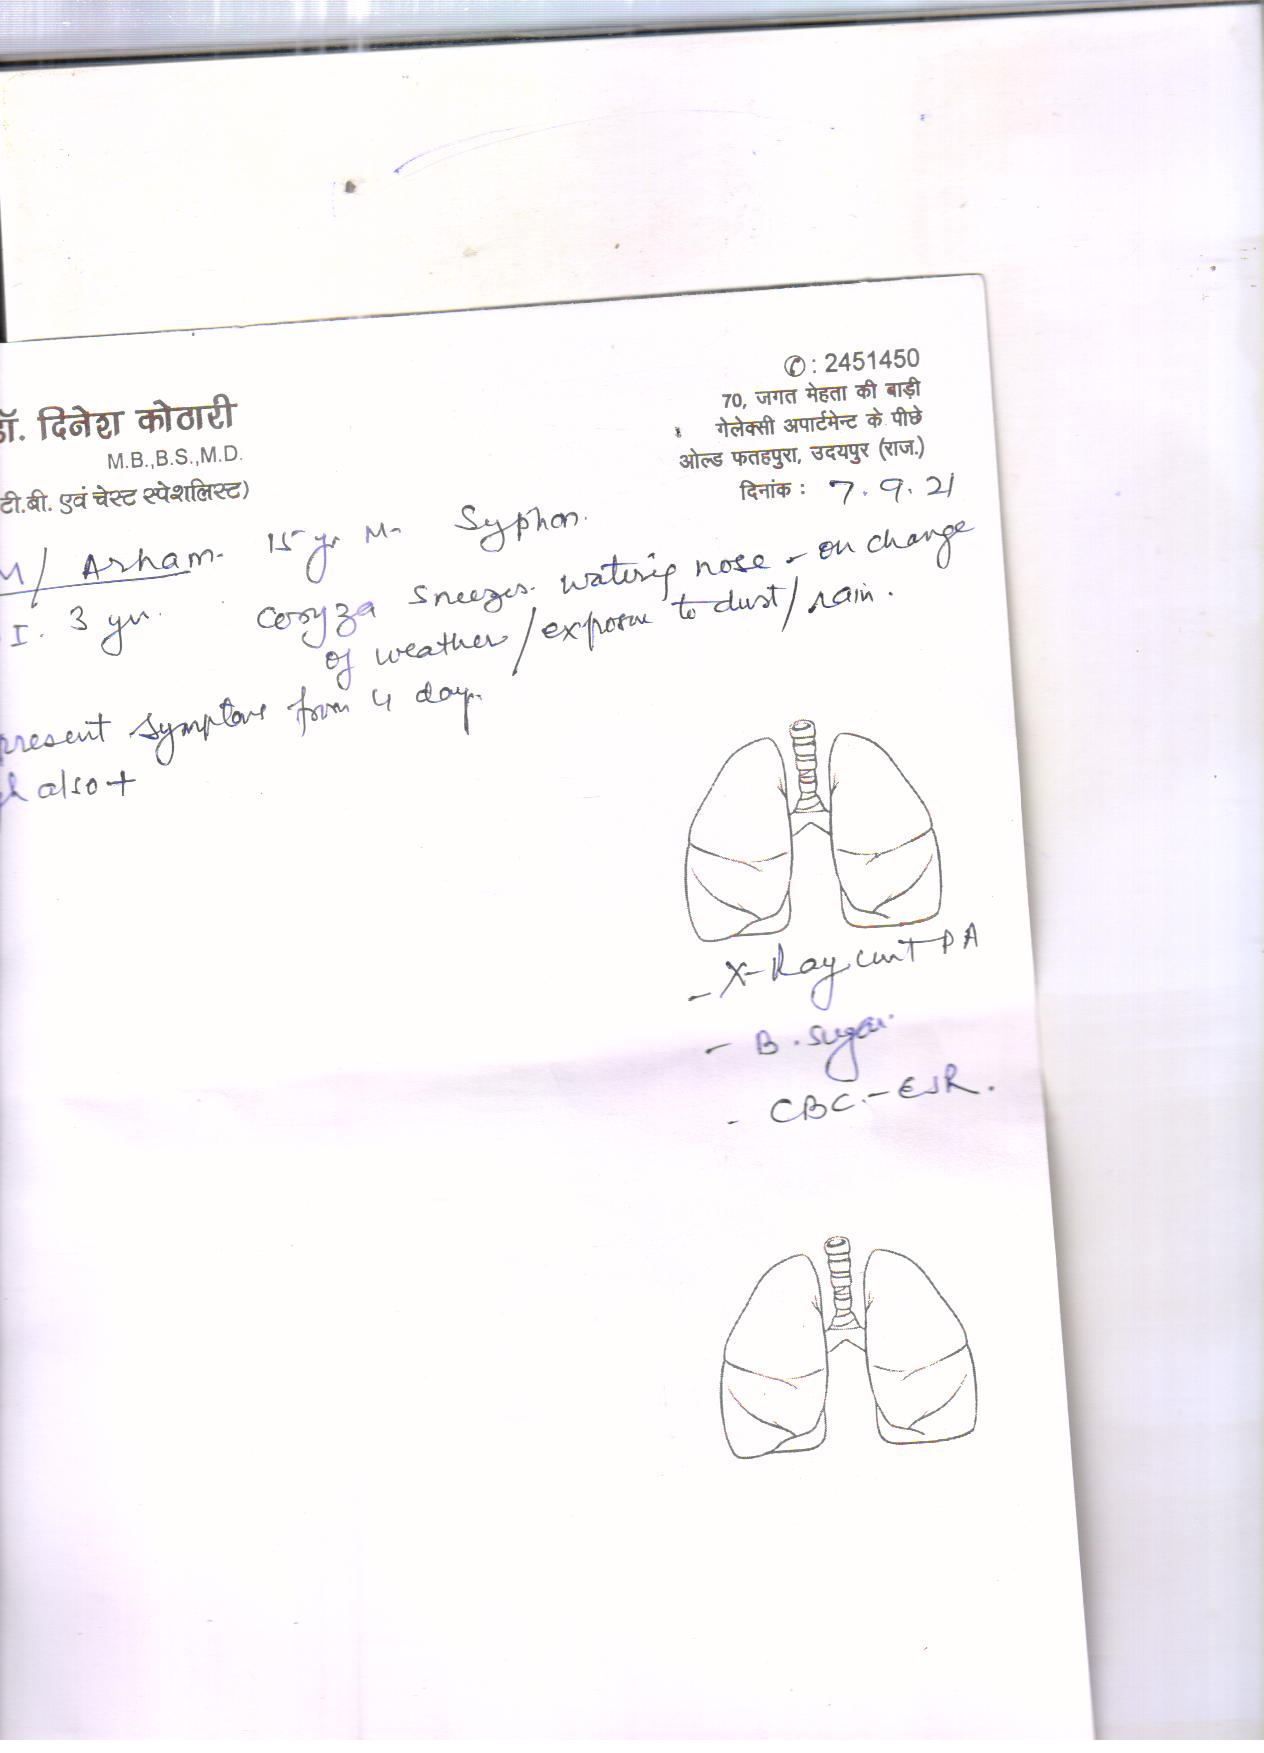 ✆: 2451450
70, जगत मेहता की बाड़ी
गेलेक्सी अपार्टमेन्ट के पीछे
ओल्ड फतहपुरा, उदयपुर (राज.)
दिनांक : 7.9.21
डॉ. दिनेश कोठारी
M.B.,B.S.,M.D.
टी.बी. एवं चेस्ट स्पेशलिस्ट)
M/ Arham. 15 yr M- Syphon.
I. 3 yr. Coryza Sneezes. watering nose - on change
of weather/exposure to dust/rain.
present symptoms from 4 day.
also +
- X-Ray PA
- B. Sugar.
- CBC.- ESR.